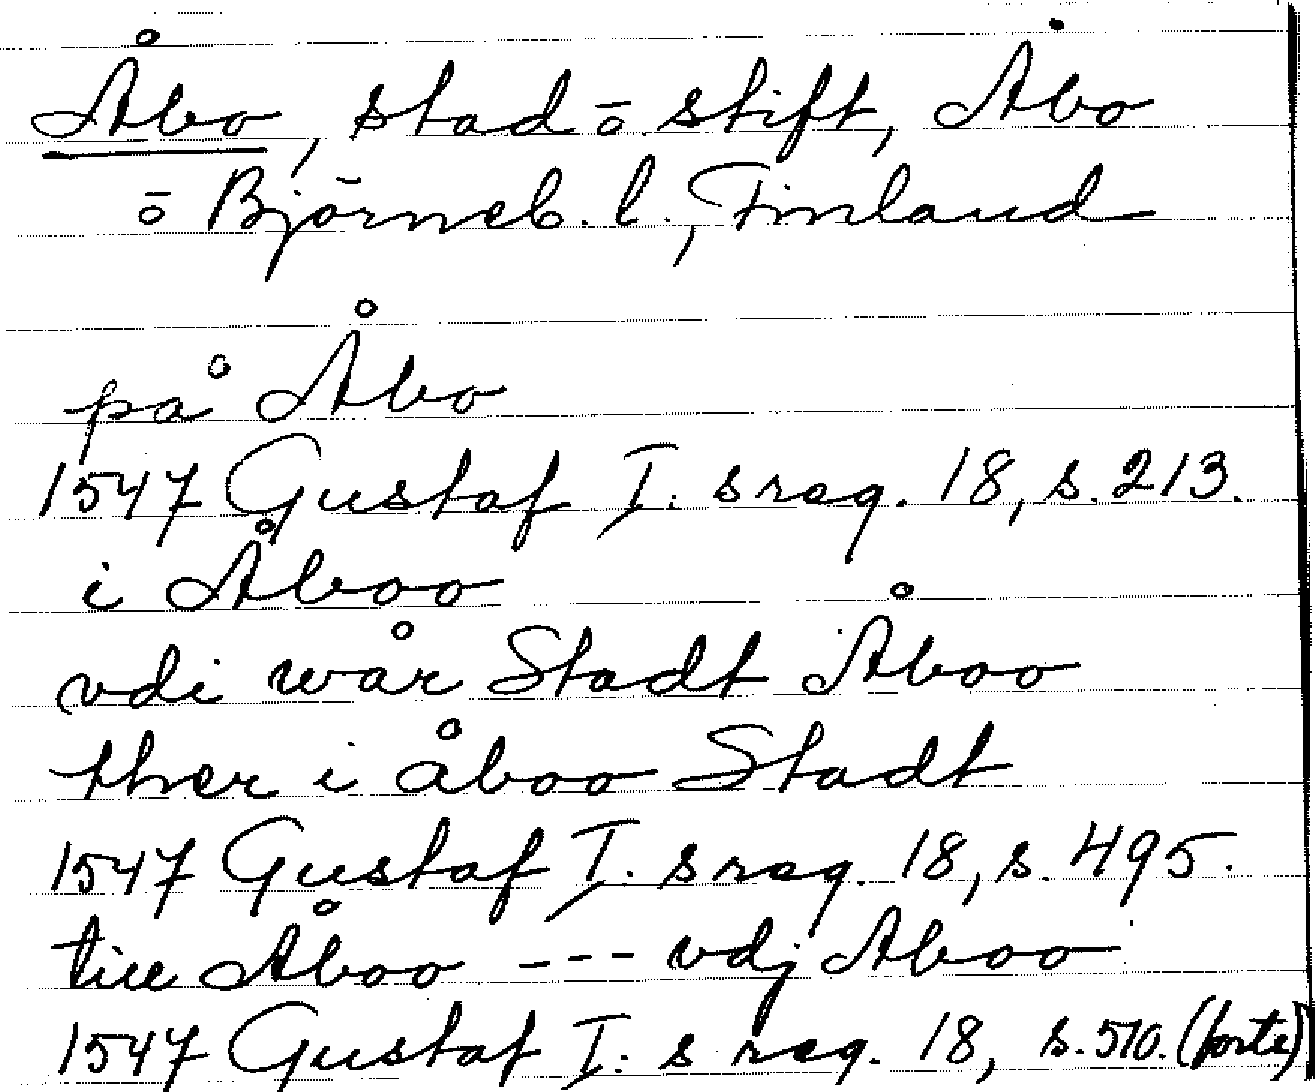 Åbo, stad ō stift, Åbo
ō Björneb. l., Finland
på Åbo
1547 Gustaf I. s reg. 18, s. 213.
i Åboo
vdi wår Stadt Åboo
ther i åboo Stadt
1547 Gustaf I. s reg. 18, s. 495.
till Åboo --- vdj Aboo
1547 Gustaf I. s reg. 18, s. 510. (forts)